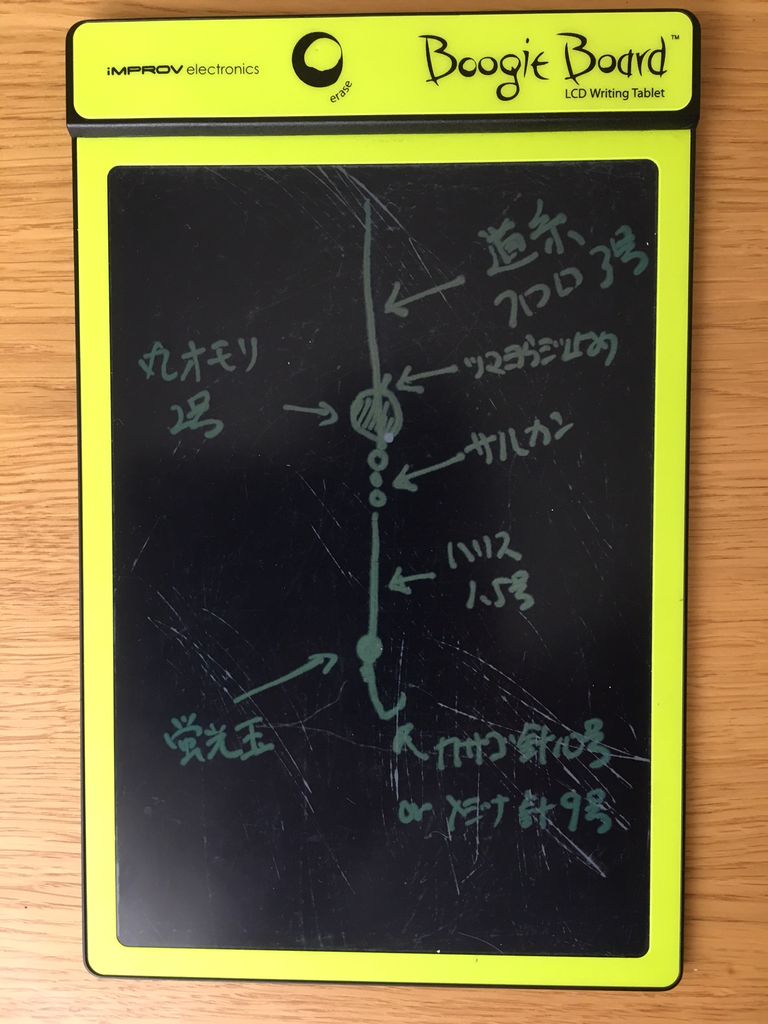 iMPROV electronics
erase
Boogie Board™
LCD Writing Tablet
道糸
フロロ 3号
丸オモリ
2号
ツマヨウジ止め
サルカン
ハリス
1.5号
蛍光玉
カサゴ針10号
or メジナ針9号